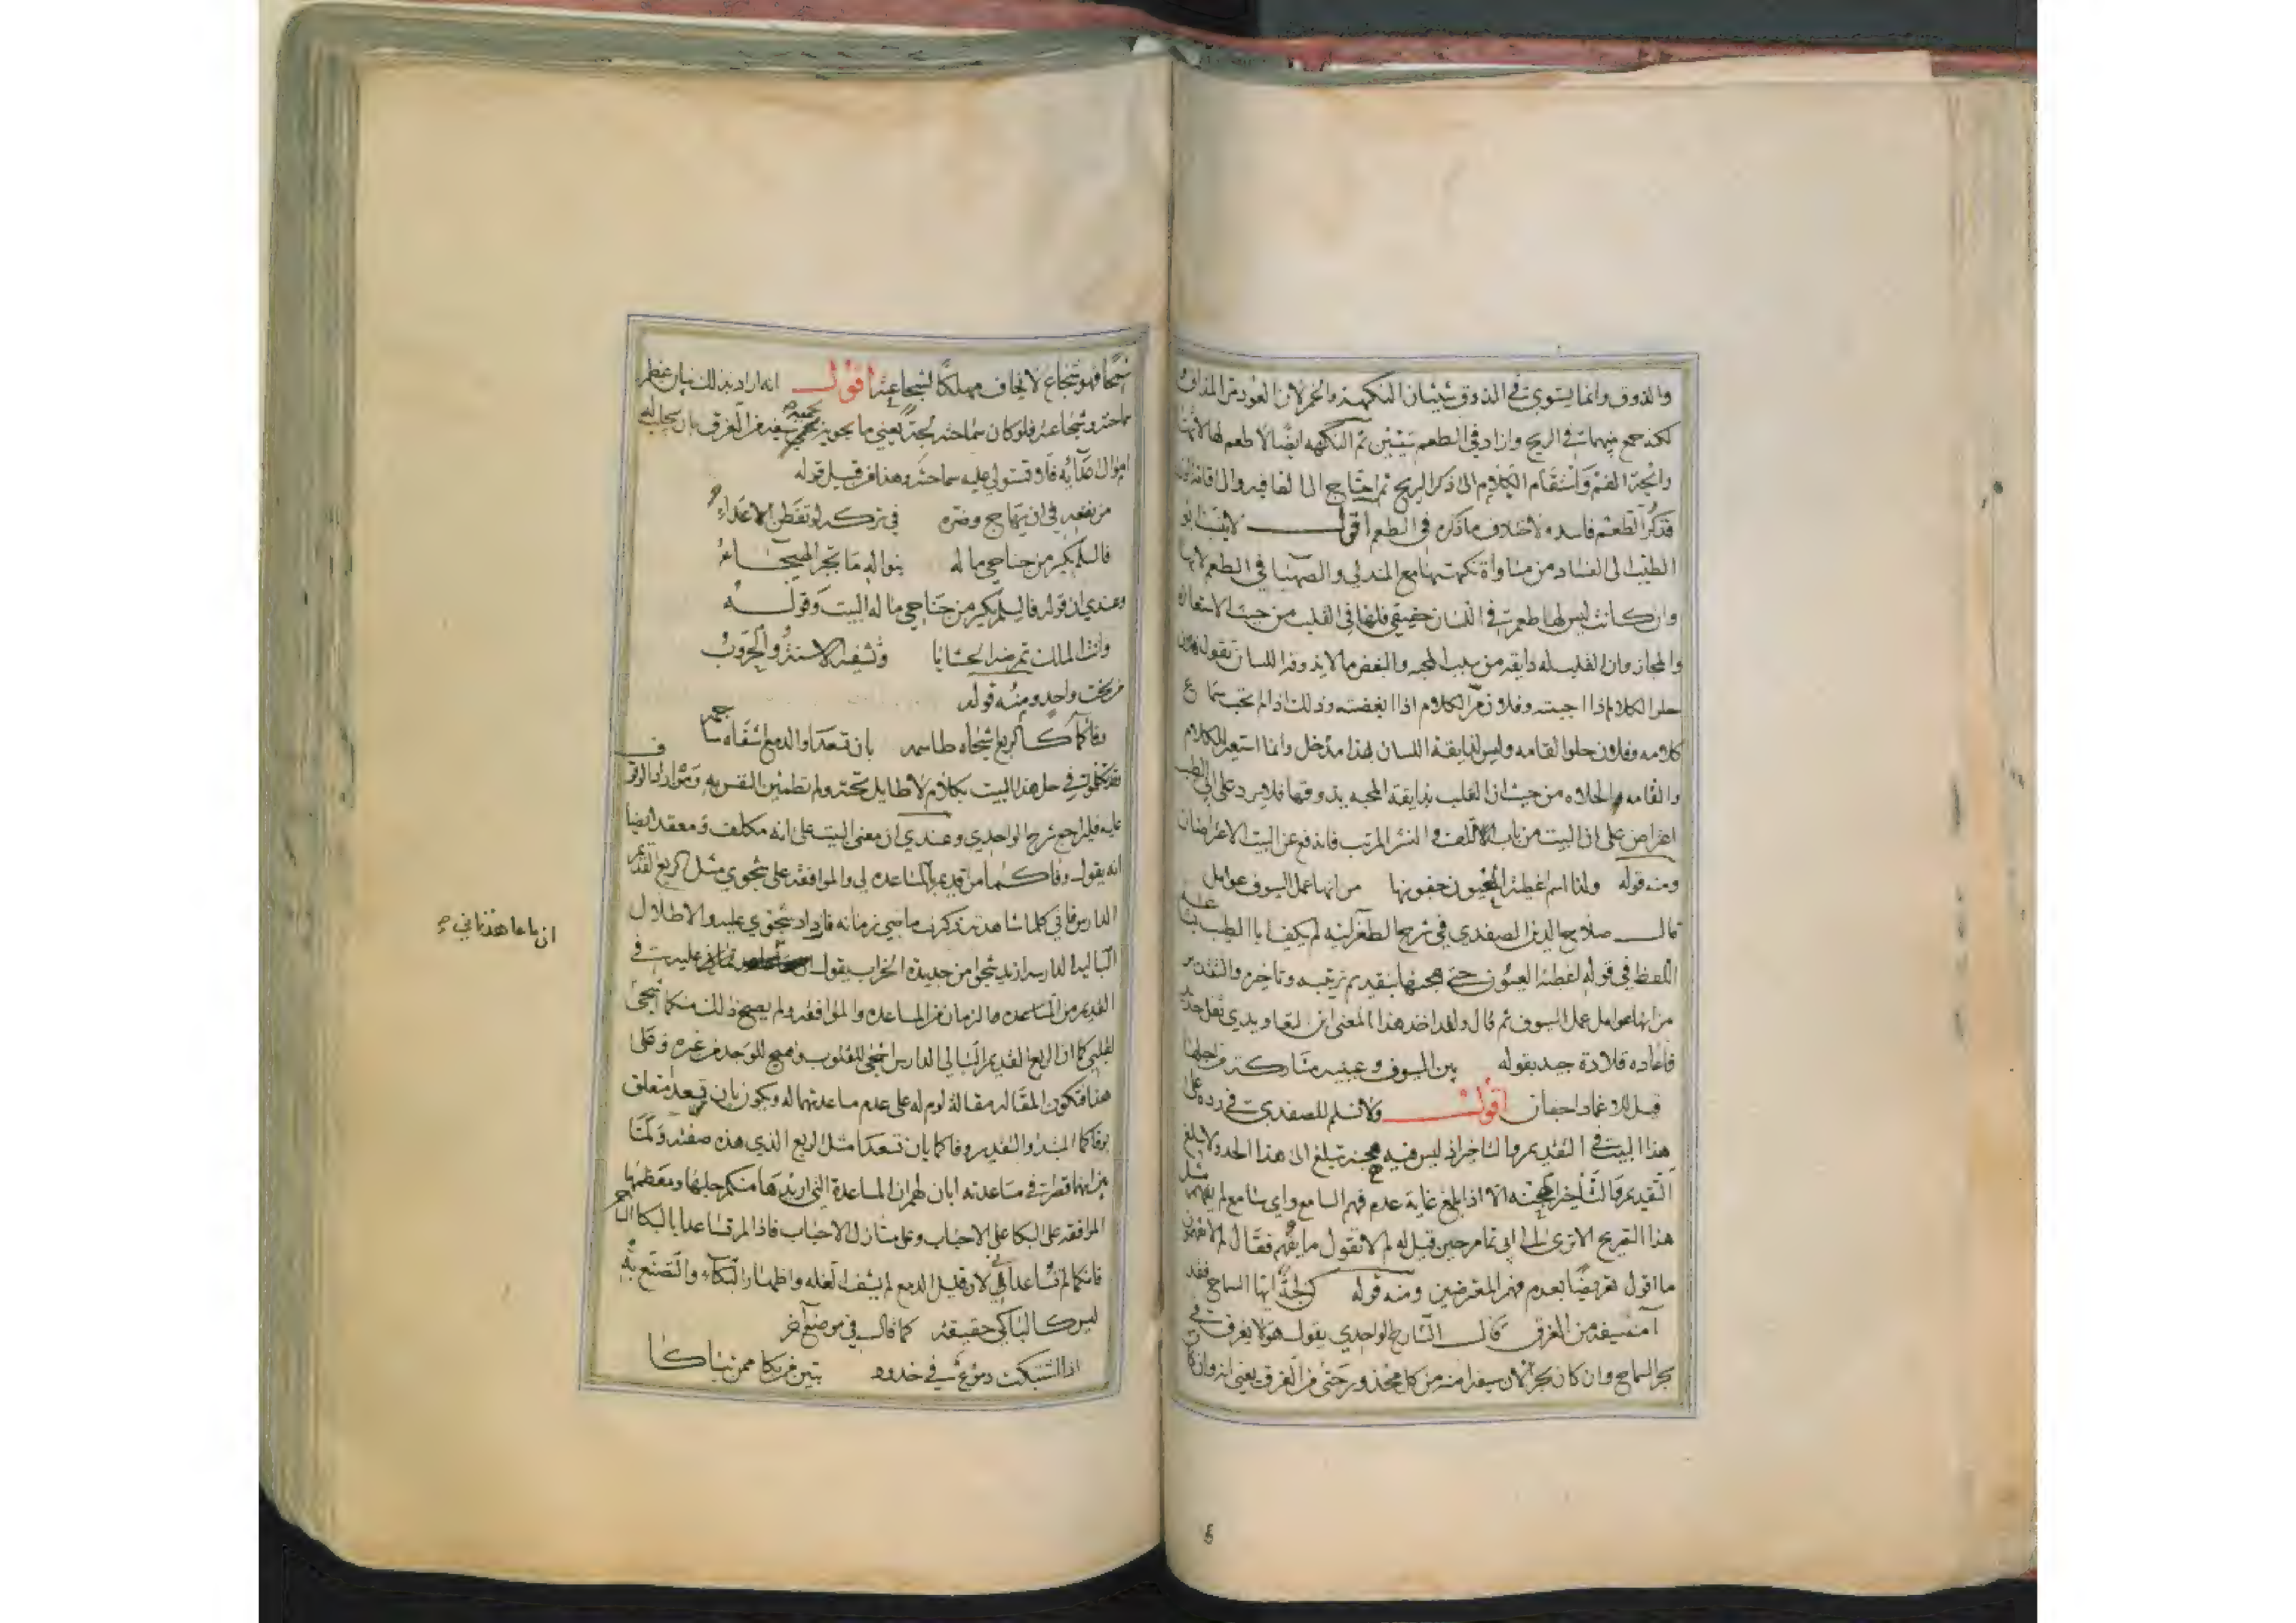 والذوق وانما يستوي في الذوق شيئان النكهة والخمر لان العود من المذاق
لكنه جمع بينهما في الريح وازاد في الطعم شيئين ثم النكهه ايضا لا طعم لها لانها
رائحة الفم واستقام الكلام الى ذكر الريح ثم احتاج الى القافيه والى اقامة الوزن
فذكر الطعم فاسد ولا خلاف ما ذكره في الطعم اقول لا ينسب ابو
الطيب الى الفساد من مساواة نكهتها مع المندلي والصهبا في الطعم لانها
وان كانت ليس لها طعم في اللسان حقيقي فلها في القلب من حيث الاستعارة
والمجاز وان القلب له ذايقه من سبب المحبه والبغض ما لا يذوقه اللسان تقول فلان
حلو الكلام اذا احببته وفلان مر الكلام اذا ابغضته وذلك اذا لم تحب سماع
كلامه وفلان حلو القامه وليس لذايقة اللسان بهذا مدخل وانما استعير للكلام
والقامه الحلاوه من حيث ان القلب بذايقة المحبه يذوقها فلا يرد على ابي الطيب
اعتراض على ان البيت من باب اللف والنشر المرتب فاندفع عن البيت الاعتراضان
ومنه قوله ولذا اسم اغطية العيون جفونها من انها عمل السيوف عوامل
قال صلاح الدين الصفدي في شرح الطغرائيه لم يكف ابا الطيب بشاعة
اللفظ في قوله اغطية العيون حتى هجنها بتقديم ترتيبه وتاخيره والتقدير
من انها عوامل عمل السيوف ثم قال ولقد اخذ هذا المعنى ابن التعاويذي نقل حديد
فاعاده قلادة جيد بقوله بين السيوف وعينيه مشاركة من اجلها
قيل للاغماد اجفان اقول ولا نسلم للصفدي في رده على
هذا البيت في التقديم والتاخير اذ ليس فيه هجنة تبلغ الى هذا الحد ولا يبلغ
التقديم والتاخير الهجنه الا اذا بلغ غاية عدم فهم السامع واي سامع لم يفهم مثل
هذا التقريح الا ترى الى ابي تمام حين قيل له لم لا تقول ما يفهم فقال لم لا تفهمون
ما اقول تعريضا بعدم فهم المعترضين ومنه قوله كن لجة ايها السماح فقد
آمنه سيفه من الغرق قال الشارح الواحدي يقول هو لا يغرق في
بحر السماح وان كان بحرا لان سيفه امنه من كل محذور حتى من الغرق يعني انه وان كان
سمحا فهو شجاع لا يخاف مهلكا لشجاعته اقول انه اراد بذلك بيان عظم
سماحته وشجاعته فلو كان سماحته لجة يعني ما يحويه يحميه سيفه من الغرق بان يجلب له
اموال اعدائه فلا تستولي عليه سماحته وهذا من قبيل قوله
من نفعه في ان يهاج وضره في تركه لو تفطن الاعداء
فالسلم يكسر من جناحي ماله بنواله ما تجبر الهيجاء
وعندي ان قوله فالسلم يكسر من جناحي ماله البيت وقوله
وانت الملك تمرضه الحشايا وتشفيه الاسنة والحروب
من بحث واحد ومنه قوله
وفاؤكما كالربع اشجاه طاسمه بان تسعدا والدمع اشفاه ساجمه
فقد تكلموا في حل هذا البيت بكلام لا طايل تحته ولم تطمئن النفس به ومن اراد الوقوف
عليه فليراجع شرح الواحدي وعندي ان معنى البيت على انه مكلف ومعقد ايضا
انه يقول وفاكما من قديم بالمساعده لي والموافقه على شجوي مثل الربع القديم
الدارس فاني كلما شاهدته تذكرت ما مضى من زمانه فازداد شجوي عليه والاطلال
الباليه الدارسه ازيد شجوا من جديدة الخراب يقول ان ما عاهدتماني عليه في
القديم من المساعده والزمان من المساعده والموافقه ولم يصح ذلك منكما اشجى
لقلبي كما ان الربع القديم البالي الدارس اشجى للقلوب واهيج للوجد من غيره وعلى
هذا فتكون المقالة مقالة لوم له على عدم مساعدتهما له ويكون بان تسعدا متعلق
بوفاكما المبتدا والتقدير وفاكما بان تسعدا مثل الربع الذي هذه صفته ولما
من انهما قصرا في مساعدته ابان لهم ان المساعدة التي اريدها منكم جلها ومعظمها
الموافقه على البكا على الاحباب وعلى منازل الاحباب فاذا لم تساعدا بالبكا الساجم
فانكما لم تساعداني لان قليل الدمع لم يشف الغله واظهار البكاء والتصنع به
ليس كالباكي حقيقة كما قال في موضع آخر
اذا اشتبكت دموع في خدود تبين من بكا ممن تباكا
ان ما عاهدتماني صح